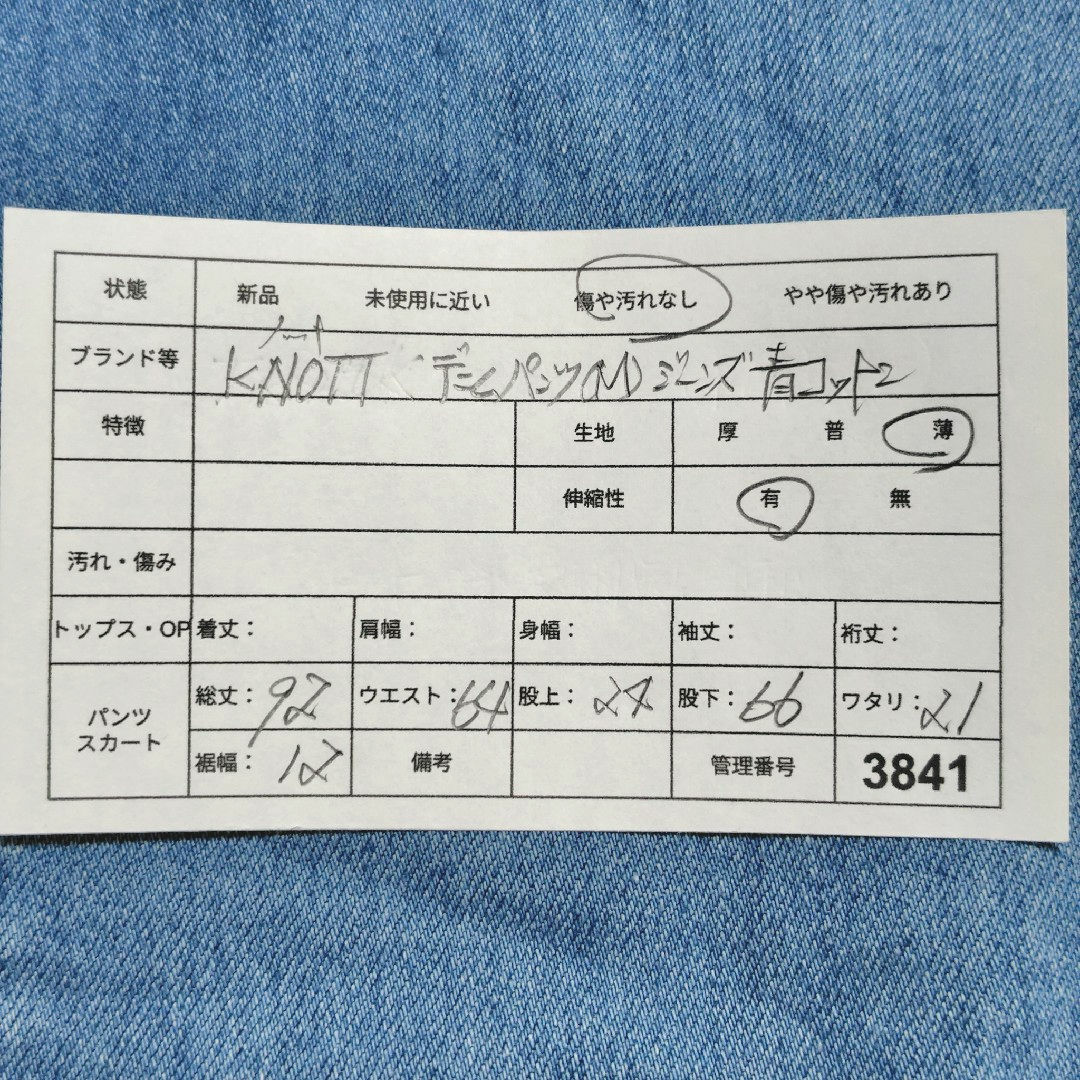 状態 新品 未使用に近い 傷や汚れなし やや傷や汚れあり
ノット
ブランド等 KNOTT デニムパンツ(M) ジーンズ 青 コットン
特徴 生地 厚 普 薄
伸縮性 有 無
汚れ・傷み
トップス・OP 着丈: 肩幅: 身幅: 袖丈: 裄丈:
パンツ スカート 総丈: 92 ウエスト: 64 股上: 24 股下: 66 ワタリ: 21
裾幅: 12 備考 管理番号 3841